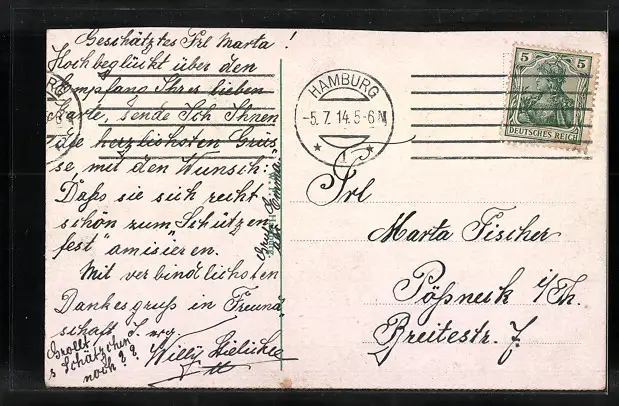 Geschätztes Frl Marta!
Hochbeglückt über den
Empfang Ihres lieben
Karte, sende Ich Ihnen
die herzlichsten Grüs-
se mit den Wunsch:
"Dass sie sich recht
schön zum "Schützen
fest" amisieren.
Mit verbindlichsten
Dankesgruss in "Freund
schaft
Willy
Grollt
s Schätzchen
noch??
Gruss Emma
HAMBURG
-5.7.14.5-6N
1
5 5
DEUTSCHES REICH
Frl
Marta Fischer
Pößneck i/Th.
Breitestr. 7.